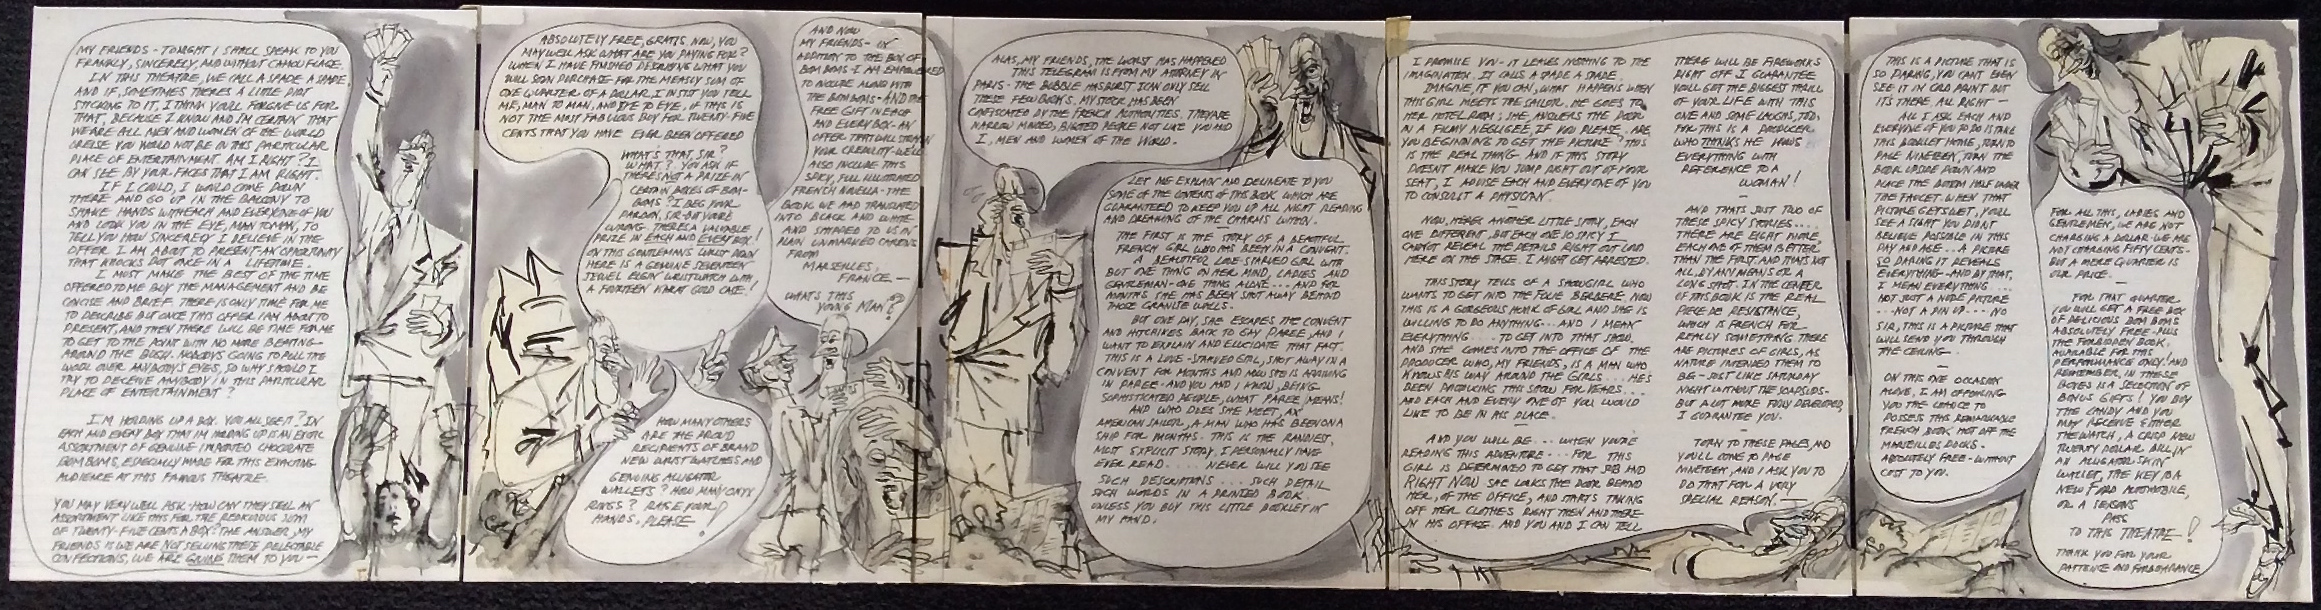 MY FRIENDS - TONIGHT I SHALL SPEAK TO YOU
FRANKLY, SINCERELY, AND WITHOUT CAMOUFLAGE.
IN THIS THEATRE, WE CALL A SPADE A SPADE
AND IF, SOMETIMES THERE'S A LITTLE DIRT
STICKING TO IT, I THINK YOU'LL FORGIVE US FOR
THAT, BECAUSE I KNOW AND I'M CERTAIN THAT
WE ARE ALL MEN AND WOMEN OF THE WORLD
OR ELSE YOU WOULD NOT BE IN THIS PARTICULAR
PLACE OF ENTERTAINMENT. AM I RIGHT? I
CAN SEE BY YOUR FACES THAT I AM RIGHT.
IF I COULD, I WOULD COME DOWN
THERE AND GO UP IN THE BALCONY TO
SHAKE HANDS WITH EACH AND EVERYONE OF YOU
AND LOOK YOU IN THE EYE, MAN TO MAN, TO
TELL YOU HOW SINCERELY I BELIEVE IN THE
OFFER I AM ABOUT TO PRESENT. AN OPPORTUNITY
THAT KNOCKS BUT ONCE IN A LIFETIME.
I MUST MAKE THE BEST OF THE TIME
OFFERED TO ME BUY THE MANAGEMENT AND BE
CONCISE AND BRIEF. THERE IS ONLY TIME FOR ME
TO DESCRIBE BUT ONCE THIS OFFER I AM ABOUT TO
PRESENT, AND THEN THERE WILL BE TIME FOR ME
TO GET TO THE POINT WITH NO MORE BEATING
AROUND THE BUSH. NOBODYS GOING TO PULL THE
WOOL OVER ANYBODY'S EYES, SO WHY SHOULD I
TRY TO DECEIVE ANYBODY IN THIS PARTICULAR
PLACE OF ENTERTAINMENT?
I'M HOLDING UP A BOX. YOU ALL SEE IT? IN
EACH AND EVERY BOX THAT I'M HOLDING UP IS AN EXOTIC
ASSORTMENT OF GENUINE IMPORTED CHOCOLATE
BOM BOMS, ESPECIALLY MADE FOR THIS EXACTING
AUDIENCE AT THIS FAMOUS THEATRE.
YOU MAY VERY WELL ASK - HOW CAN THEY SELL AN
ASSORTMENT LIKE THIS FOR THE REDICULOUS SUM
OF TWENTY-FIVE CENTS A BOX? THE ANSWER, MY
FRIENDS IS WE ARE NOT SELLING THESE DELECTABLE
CONFECTIONS, WE ARE GIVING THEM TO YOU -
ABSOLUTELY FREE, GRATIS. NOW, YOU
MAY WELL ASK WHAT ARE YOU PAYING FOR?
WHEN I HAVE FINISHED DESCRIBING WHAT YOU
WILL SOON PURCHASE FOR THE MEASLY SUM OF
ONE QUARTER OF A DOLLAR, I INSIST YOU TELL
ME, MAN TO MAN, AND EYE TO EYE, IF THIS IS
NOT THE MOST FABULOUS BUY FOR TWENTY-FIVE
CENTS THAT YOU HAVE EVER BEEN OFFERED
WHAT'S THAT, SIR?
WHAT? YOU ASK IF
THERE'S NOT A PRIZE IN
CERTAIN BOXES OF BOM-
BOMS? I BEG YOUR
PARDON, SIR - BUT YOU'RE
WRONG. THERE'S A VALUABLE
PRIZE IN EACH AND EVERY BOX!
ON THIS GENTLEMAN'S WRIST DOWN
HERE IS A GENUINE SEVENTEEN
JEWEL ELGIN WRISTWATCH WITH
A FOURTEEN KARAT GOLD CASE!
HOW MANY OTHERS
ARE THE PROUD
RECIPIENTS OF BRAND
NEW WRIST WATCHES AND
GENUINE ALLIGATOR
WALLETS? HOW MANY ONYX
RINGS? RAISE YOUR
HANDS, PLEASE!
AND NOW
MY FRIENDS - IN
ADDITION TO THE BOX OF
BOM BOMS - I AM EMPOWERED
TO INCLUDE ALONG WITH
THE BOM BOMS - AND THE
FREE GIFT IN EACH
AND EVERY BOX - AN
OFFER THAT WILL STRAIN
YOUR CREDULITY - WE'LL
ALSO INCLUDE THIS
SPICY, FULL ILLUSTRATED
FRENCH NOVELLA - THE
BOOK WE HAD TRANSLATED
INTO BLACK AND WHITE
AND SHIPPED TO US IN
PLAIN UNMARKED CARTONS
FROM
MARSEILLES,
FRANCE -
WHAT'S THIS
YOUNG MAN?
ALAS, MY FRIENDS, THE WORST HAS HAPPENED
THIS TELEGRAM IS FROM MY ATTORNEY IN
PARIS - THE BUBBLE HAS BURST I CAN ONLY SELL
THESE FEW BOOKS. MY STOCK HAS BEEN
CONFISCATED BY THE FRENCH AUTHORITIES. THEY ARE
NARROW MINDED, BIGOTED PEOPLE NOT LIKE YOU AND
I, MEN AND WOMEN OF THE WORLD.
LET ME EXPLAIN AND DELINEATE TO YOU
SOME OF THE CONTENTS OF THIS BOOK WHICH ARE
GUARANTEED TO KEEP YOU UP ALL NIGHT READING
AND DREAMING OF THE CHARMS WITHIN.
THE FIRST IS THE STORY OF A BEAUTIFUL
FRENCH GIRL WHO HAS BEEN IN A CONVENT.
A BEAUTIFUL LOVE-STARVED GIRL WITH
BUT ONE THING ON HER MIND, LADIES AND
GENTLEMAN - ONE THING ALONE... AND FOR
MONTHS SHE HAS BEEN SHUT AWAY BEHIND
THOSE GRANITE WALLS.
BUT ONE DAY, SHE ESCAPES THE CONVENT
AND HITCHIKES BACK TO GAY PAREE, AND I
WANT TO EXPLAIN AND ELUCIDATE THAT FACT.
THIS IS A LOVE-STARVED GIRL, SHUT AWAY IN A
CONVENT FOR MONTHS AND NOW SHE IS ARRIVING
IN PAREE - AND YOU AND I KNOW, BEING
SOPHISTICATED PEOPLE, WHAT PAREE MEANS!
AND WHO DOES SHE MEET, AN
AMERICAN SAILOR, A MAN WHO HAS BEEN ON A
SHIP FOR MONTHS. THIS IS THE RANDIEST,
MOST EXPLICIT STORY, I PERSONALLY HAVE
EVER READ..... NEVER WILL YOU SEE
SUCH DESCRIPTIONS.... SUCH DETAIL
SUCH WORLDS IN A PRINTED BOOK
UNLESS YOU BUY THIS LITTLE BOOKLET IN
MY HAND.
I PROMISE YOU - IT LEAVES NOTHING TO THE
IMAGINATION. IT CALLS A SPADE A SPADE.
IMAGINE, IF YOU CAN, WHAT HAPPENS WHEN
THIS GIRL MEETS THE SAILOR. HE GOES TO
HER HOTEL ROOM; SHE ANSWERS THE DOOR
IN A FILMY NEGLIGEE, IF YOU PLEASE. ARE
YOU BEGINNING TO GET THE PICTURE? THIS
IS THE REAL THING - AND IF THIS STORY
DOESN'T MAKE YOU JUMP RIGHT OUT OF YOUR
SEAT, I ADVISE EACH AND EVERYONE OF YOU
TO CONSULT A PHYSICIAN.
NOW, HERE'S ANOTHER LITTLE STORY, EACH
ONE DIFFERENT, BUT EACH ONE SO SPICY I
CANNOT REVEAL THE DETAILS RIGHT OUT LOUD
HERE ON THE STAGE. I MIGHT GET ARRESTED.
THIS STORY TELLS OF A SHOWGIRL WHO
WANTS TO GET INTO THE FOLIE BERGERE. NOW
THIS IS A GORGEOUS HUNK OF GIRL AND SHE IS
WILLING TO DO ANYTHING... AND I MEAN
EVERYTHING.... TO GET INTO THAT SHOW.
AND SHE COMES INTO THE OFFICE OF THE
PRODUCER WHO, MY FRIENDS, IS A MAN WHO
KNOWS HIS WAY AROUND THE GIRLS... HE'S
BEEN PRODUCING THIS SHOW FOR YEARS.
AND EACH AND EVERY ONE OF YOU WOULD
LIKE TO BE IN HIS PLACE.
AND YOU WILL BE... WHEN YOU'RE
READING THIS ADVENTURE... FOR THIS
GIRL IS DETERMINED TO GET THAT JOB AND
RIGHT NOW SHE LOCKS THE DOOR BEHIND
HER, OF THE OFFICE, AND STARTS TAKING
OFF HER CLOTHES RIGHT THEN AND THERE
IN HIS OFFICE. AND YOU AND I CAN TELL
THERE WILL BE FIREWORKS
RIGHT OFF I GUARANTEE
YOU'LL GET THE BIGGEST THRILL
OF YOUR LIFE WITH THIS
ONE AND SOME LAUGHS, TOO.
FOR THIS IS A PRODUCER
WHO THINKS HE KNOWS
EVERYTHING WITH
REFERENCE TO A
WOMAN!
AND THATS JUST TWO OF
THESE SPICY STORIES....
THERE ARE EIGHT MORE,
EACH ONE OF THEM BETTER
THAN THE FIRST AND THAT'S NOT
ALL, BY ANY MEANS OR A
LONG SHOT. IN THE CENTER
OF THIS BOOK IS THE REAL
PIECE DE RESISTANCE,
WHICH IS FRENCH FOR
REALLY SOMETHING. THERE
ARE PICTURES OF GIRLS, AS
NATURE INTENDED THEM TO
BE - JUST LIKE SATURDAY
NIGHT WITHOUT THE SOAPSUDS -
BUT A LOT MORE FULLY DEVELOPED,
I GUARANTEE YOU.
TURN TO THESE PAGES, AND
YOU'LL COME TO PAGE
NINETEEN, AND I ASK YOU TO
DO THAT FOR A VERY
SPECIAL REASON. -
THIS IS A PICTURE THAT IS
SO DARING, YOU CAN'T EVEN
SEE IT IN COLD PRINT BUT
ITS THERE ALL RIGHT -
ALL I ASK EACH AND
EVERYONE OF YOU TO DO IS TAKE
THIS BOOKLET HOME, TURN TO
PAGE NINETEEN, TURN THE
BOOK UPSIDE DOWN AND
PLACE THE BOTTOM HALF UNDER
THE FAUCET. WHEN THAT
PICTURE GETS WET, YOU'LL
SEE A SIGHT YOU DIDN'T
BELIEVE POSSIBLE IN THIS
DAY AND AGE... A PICTURE
SO DARING IT REVEALS
EVERYTHING - AND BY THAT,
I MEAN EVERYTHING...
NOT JUST A NUDE PICTURE
... NOT A PIN UP... NO
SIR, THIS IS A PICTURE THAT
WILL SEND YOU THROUGH
THE CEILING.
ON THIS ONE OCCASION
ALONE, I AM OFFERING
YOU THE CHANCE TO
POSSESS THIS REMARKABLE
FRENCH BOOK HOT OFF THE
MARSEILLES DOCKS -
ABSOLUTELY FREE - WITHOUT
COST TO YOU.
FOR ALL THIS, LADIES AND
GENTLEMEN, WE ARE NOT
CHARGING A DOLLAR. WE ARE
NOT CHARGING FIFTY CENTS -
BUT A MERE QUARTER IS
OUR PRICE.
FOR THAT QUARTER
YOU WILL GET A FREE BOX
OF DELICIOUS BOM BOMS
ABSOLUTELY FREE - PLUS
THE FORBIDDEN BOOK,
AVAILABLE FOR THIS
PERFORMANCE ONLY. AND
REMEMBER, IN THESE
BOXES IS A SELECTION OF
BONUS GIFTS! YOU BUY
THE CANDY AND YOU
MAY RECEIVE EITHER
THE WATCH, A CRISP NEW
TWENTY DOLLAR BILL IN
AN ALLIGATOR SKIN
WALLET, THE KEY TO A
NEW FORD AUTOMOBILE,
OR A SEASONS
PASS
TO THIS THEATRE!
THANK YOU FOR YOUR
PATIENCE AND FORBEARANCE